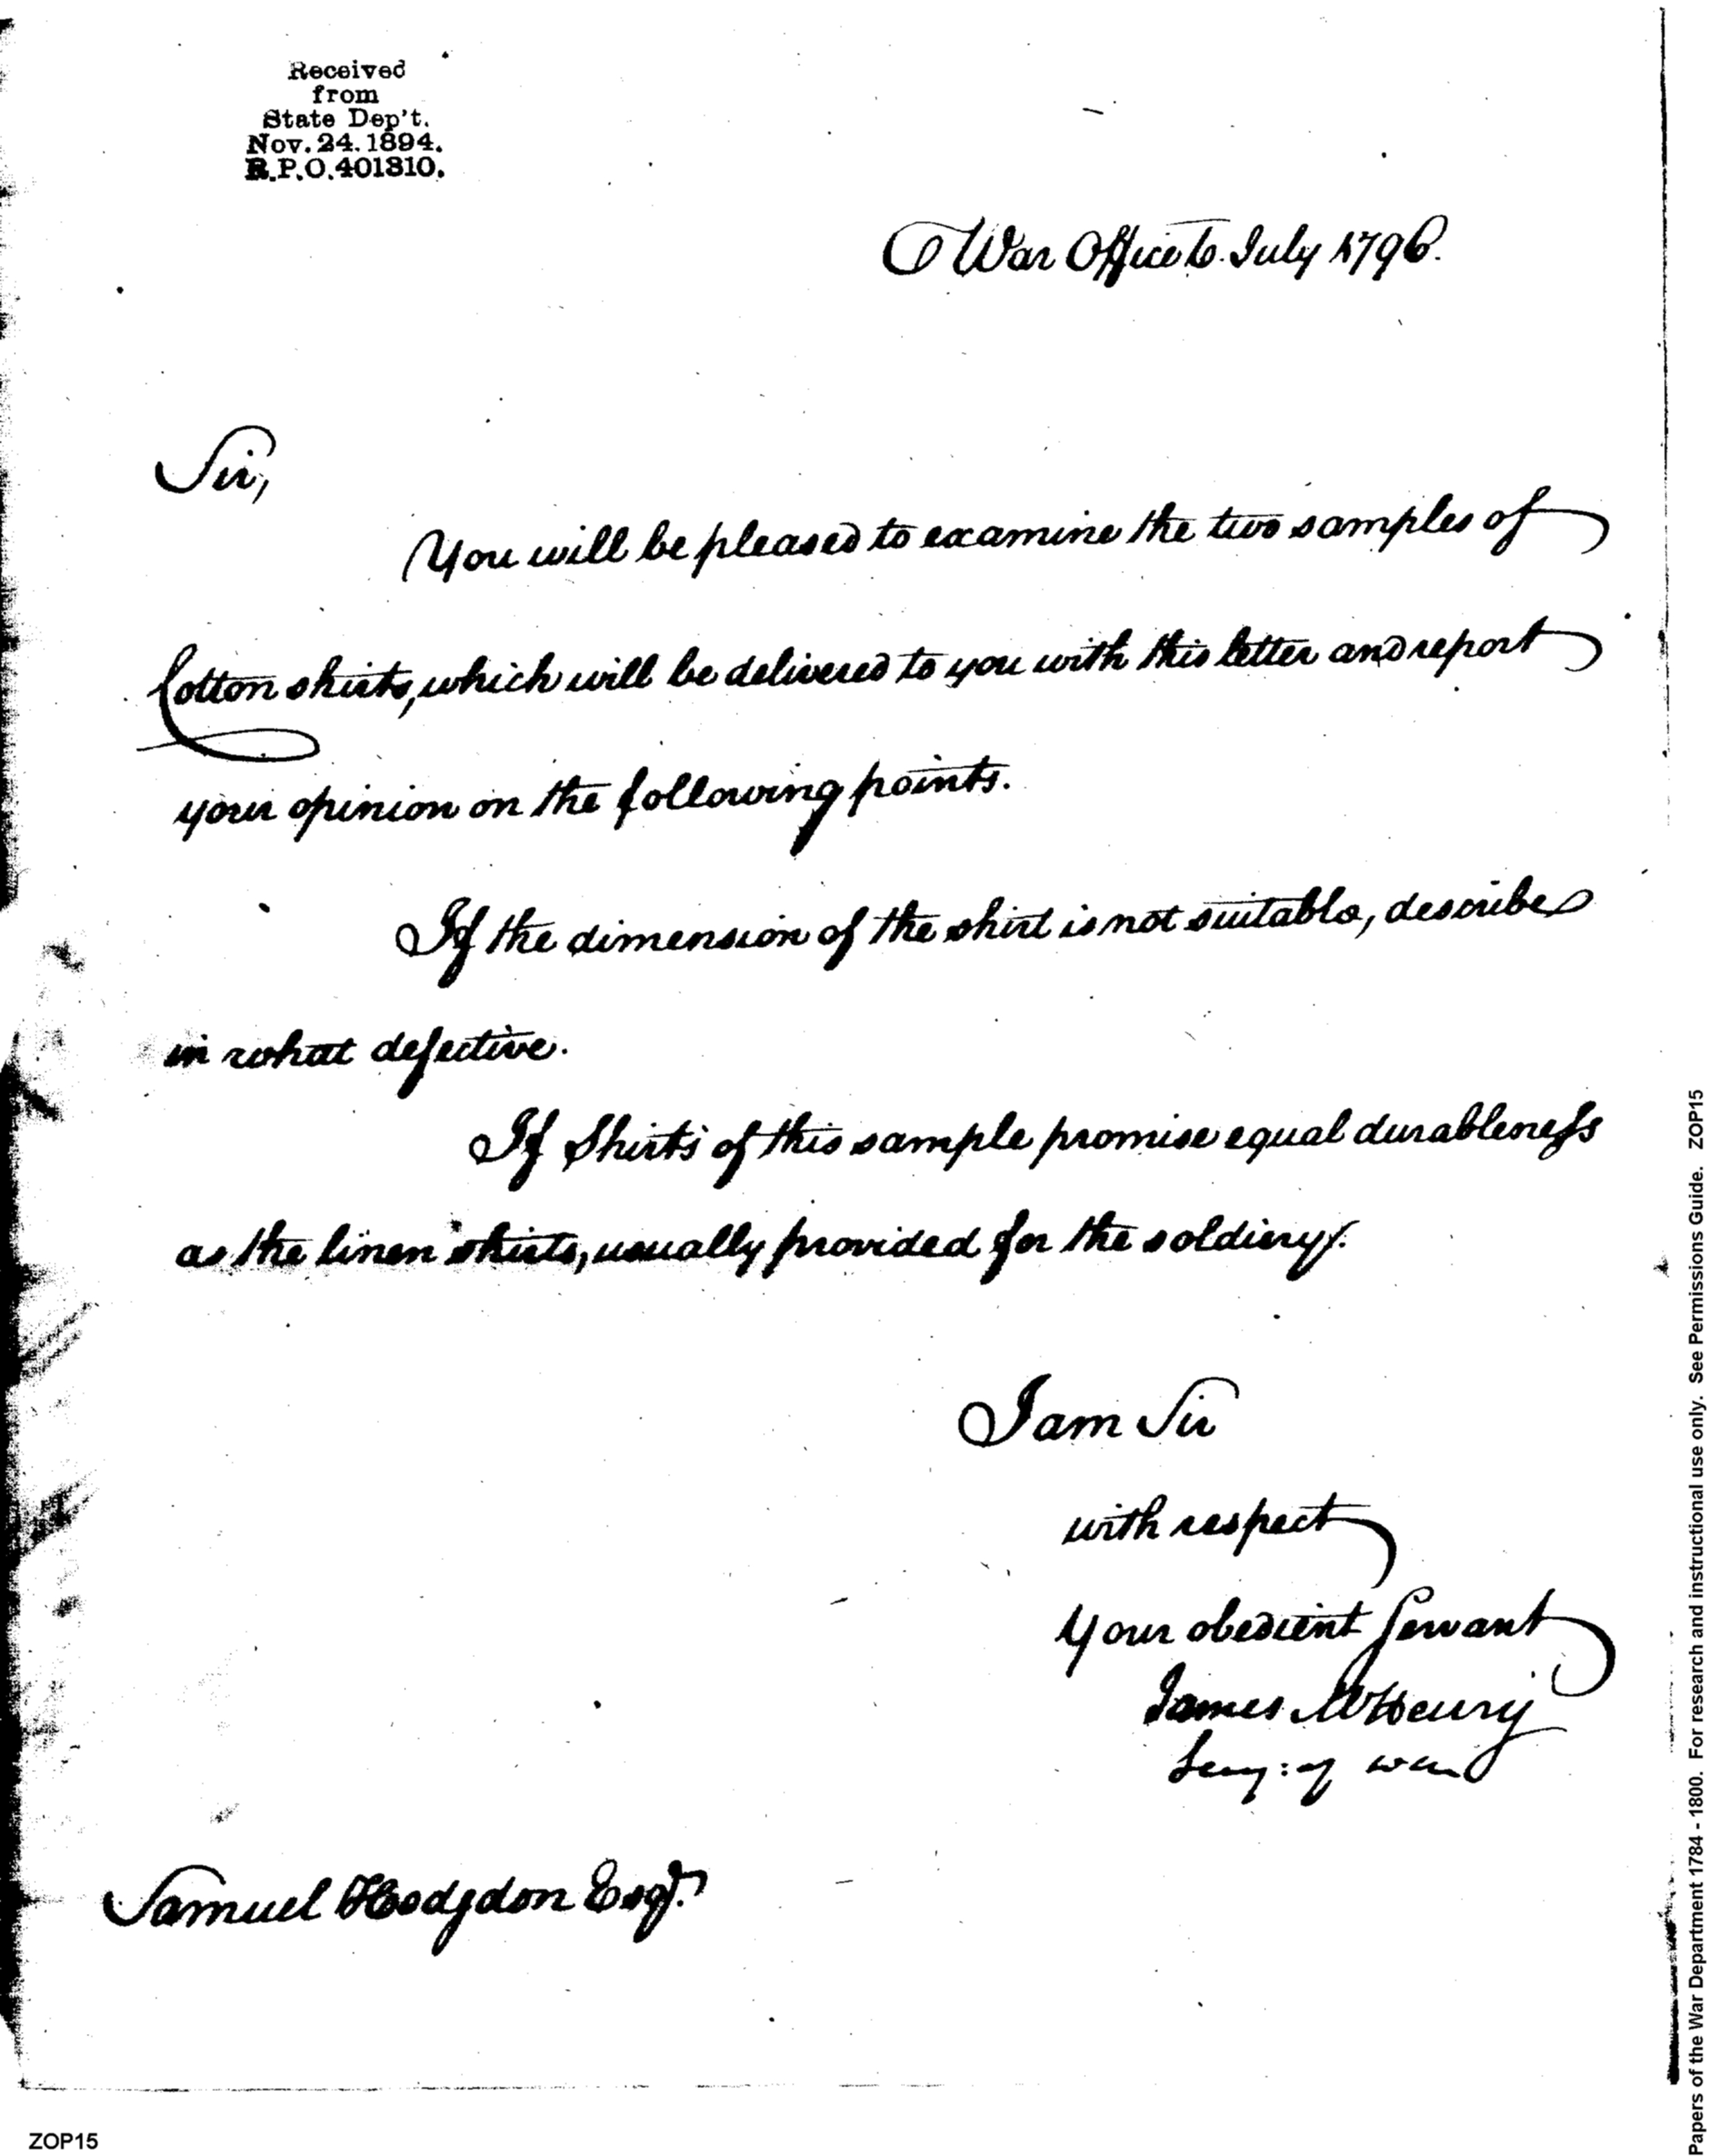 Received
from
State Dep't.
Nov. 24. 1894.
R.P.O. 401310.
War Office 6. July 1796.
Sir,
You will be pleased to examine the two samples of
Cotton shirts, which will be delivered to you with this letter and report
your opinion on the following points.
If the dimension of the shirt is not suitable, describe
in what defective.
If Shirts of this sample promise equal durableness
as the linen shirts, usually provided for the soldiery.
I am Sir
with respect
Your obedient Servant
James McHenry
Secy: of war
Samuel Hodgdon Esqr.
ZOP15
Papers of the War Department 1784 - 1800. For research and instructional use only. See Permissions Guide. ZOP15